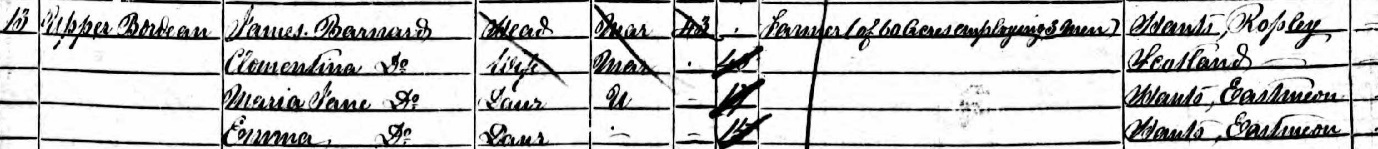 13 Upper Bordean James Barnard Head Mar 43 Farmer (of 60 Acres employing 3 men) Hants, Ropley
Clementina Do Wife Mar Scotland
Maria Jane Do Daur U Hants, Eastmeon
Emma, Do Daur Hants, Eastmeon